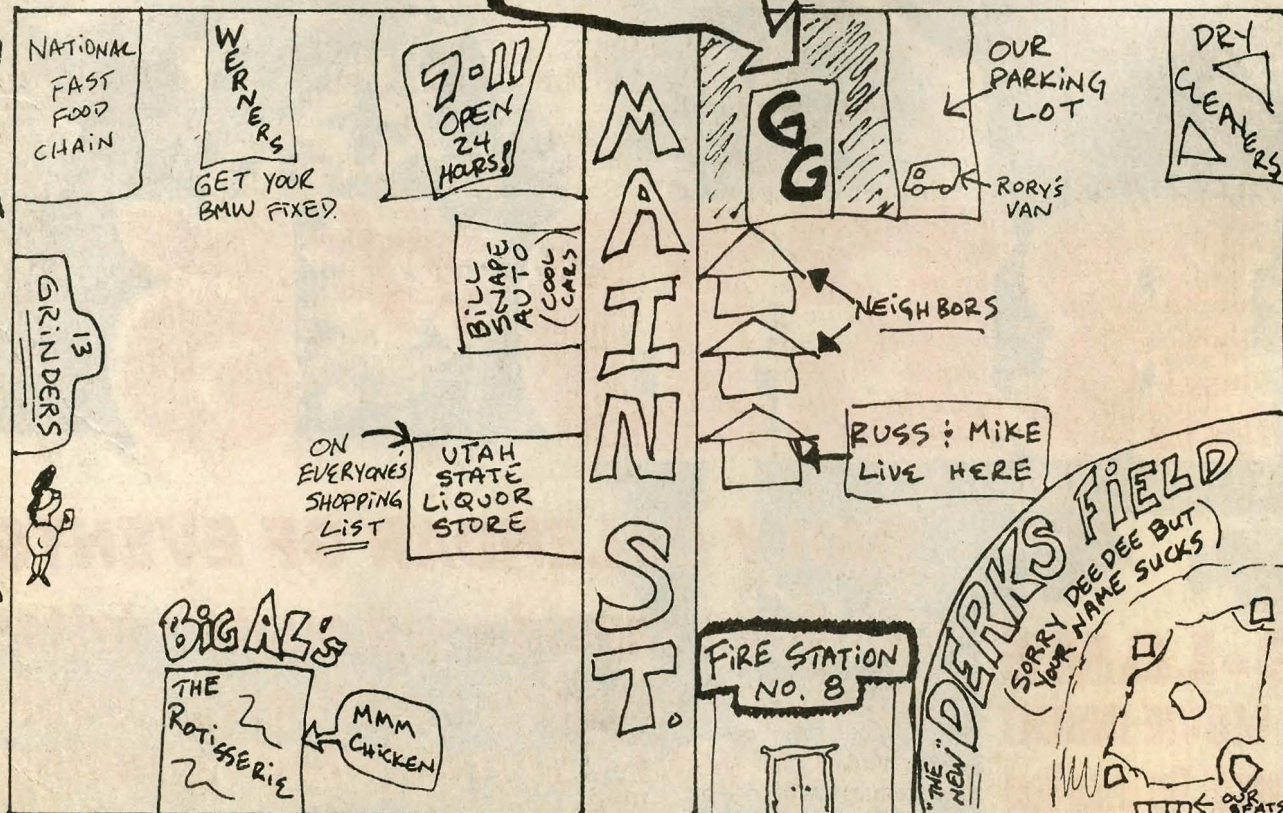 NATIONAL
FAST
FOOD
CHAIN
WERNERS
GET YOUR
BMW FIXED.
7-11
OPEN
24
HOURS!
BILL
SNAPE
AUTO
(COOL
CARS)
13
GRINDERS
ON
EVERYONE'S
SHOPPING
LIST
UTAH
STATE
LIQUOR
STORE
BIG AL'S
THE
ROTISSERIE
MMM
CHICKEN
MAIN ST.
GG
OUR
PARKING
LOT
RORY'S
VAN
DRY
CLEANERS
NEIGHBORS
RUSS & MIKE
LIVE HERE
FIRE STATION
NO. 8
"THE
NEW" DERKS FIELD
(SORRY DEE DEE BUT
YOUR NAME SUCKS)
OUR
SEATS